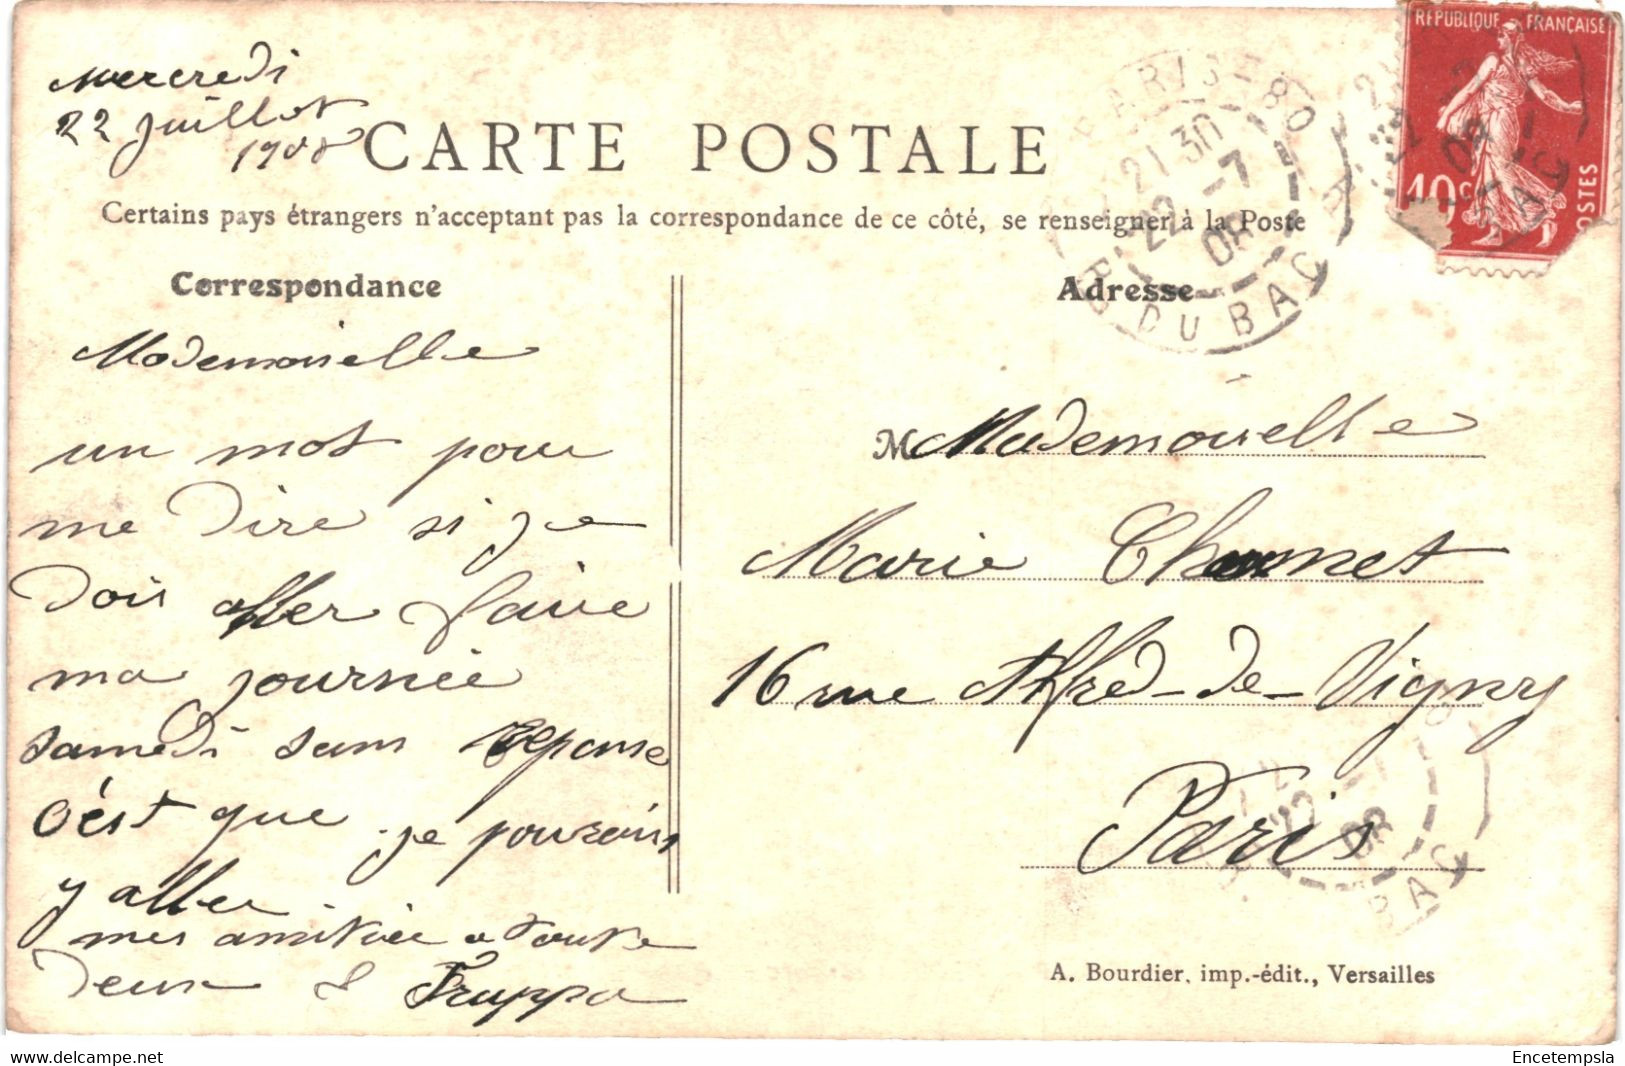 Mercredi
22 juillet
1908
CARTE POSTALE
Certains pays étrangers n'acceptant pas la correspondance de ce côté, se renseigner à la Poste
REPUBLIQUE FRANÇAISE
10 c
POSTES
PARIS 80
21 30
22 -7
08
R. DU BAC
Correspondance
Mademoiselle
un mot pour
me dire si je
dois aller faire
ma journée
samedi sans reponse
c'est que je pourais
y aller
mes amitiée a toute
deux
Adresse
M Mademoiselle
Marie
16 rue Alfred-de-Vigny
Paris
22
08
BAC
A. Bourdier, imp.-édit., Versailles
https://www.delcampe.net
Encetempsla